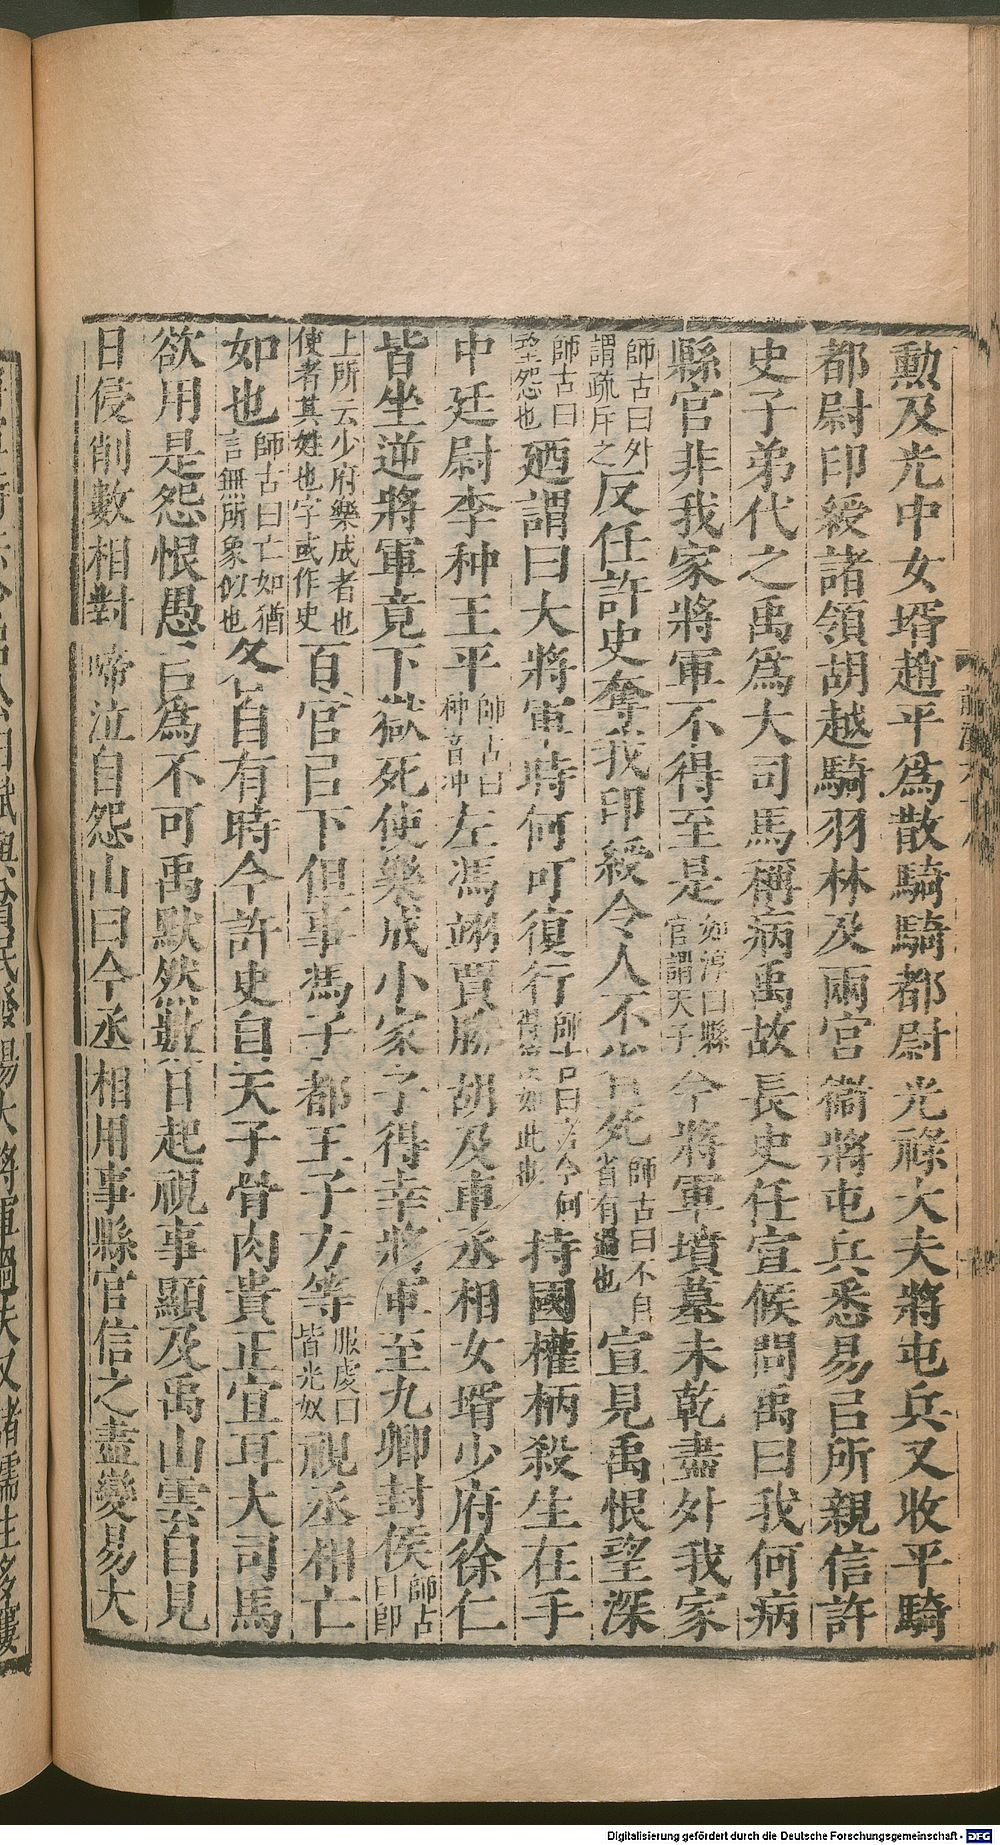 勲及光中女壻趙平爲散騎騎都尉光祿大夫將屯兵又收平騎
都尉印綬諸領胡越騎羽林及兩宮衞將屯兵悉易㠯所親信許
史子弟代之禹爲大司馬稱病禹故長史任宣候問禹曰我何病
縣官非我家將軍不得至是如淳曰縣官謂天子今將軍墳墓未乾盡外我家
師古曰外謂疏斥之反任許史奪我印綬令人不省死師古曰不自省有過也宣見禹恨望深
師古曰望怨也廼謂曰大將軍時何可復行師古曰言今何得復如此也持國權柄殺生在手
中廷尉李种王平師古曰种音冲左馮翊賈勝胡及車丞相女壻少府徐仁
皆坐逆將軍竟下獄死使樂成小家子得幸將軍至九卿封侯師古曰卽
上所云少府樂成者也使者其姓也字或作史百官㠯下但事馮子都王子方等服虔曰皆光奴視丞相亡
如也師古曰亡如猶言無所象似也各自有時今許史自天子骨肉貴正宜耳大司馬
欲用是怨恨愚㠯爲不可禹默然數日起視事顯及禹山雲自見
日侵削數相對啼泣自怨山曰今丞相用事縣官信之盡變易大
Digitalisierung gefördert durch die Deutsche Forschungsgemeinschaft - DFG